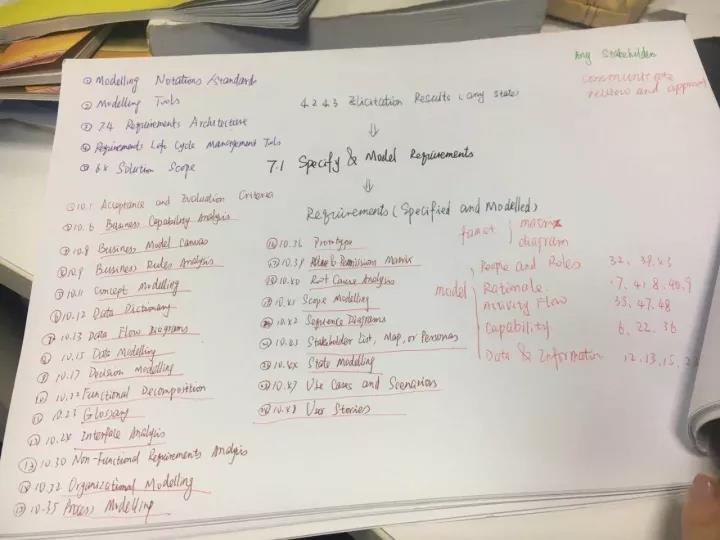 Any Stakeholder
communicate
review and approval
① Modelling Notations/Standards
② Modelling Tools
③ 7.4 Requirements Architecture
④ Requirements Life Cycle Management Tools
⑤ 6.4 Solution Scope
4.2 4.3 Elicitation Results (any state)
⇓
7.1 Specify & Model Requirements
⇓
Requirements (Specified and Modelled)
① 10.1 Acceptance and Evaluation Criteria
② 10.6 Business Capability Analysis
③ 10.8 Business Model Canvas
④ 10.9 Business Rules Analysis
⑤ 10.11 Concept Modelling
⑥ 10.12 Data Dictionary
⑦ 10.13 Data Flow Diagrams
⑧ 10.15 Data Modelling
⑨ 10.17 Decision Modelling
⑩ 10.22 Functional Decomposition
⑪ 10.23 Glossary
⑫ 10.24 Interface Analysis
⑬ 10.30 Non-Functional Requirements Analysis
⑭ 10.32 Organizational Modelling
⑮ 10.35 Process Modelling
⑯ 10.36 Prototype
⑰ 10.39 & Permission Matrix
⑱ 10.40 Root Cause Analysis
⑲ 10.41 Scope Modelling
⑳ 10.42 Sequence Diagrams
10.43 Stakeholder List, Map, or Personas
10.44 State Modelling
10.47 Use Cases and Scenarios
10.48 User Stories
format
matrix
diagram
model
People and Roles 32, 39, 43
Rationale 17, 41, 8, 40, 9
Activity Flow 35, 47, 48
Capability 6, 22, 36
Data & Information 12, 13, 15, 23